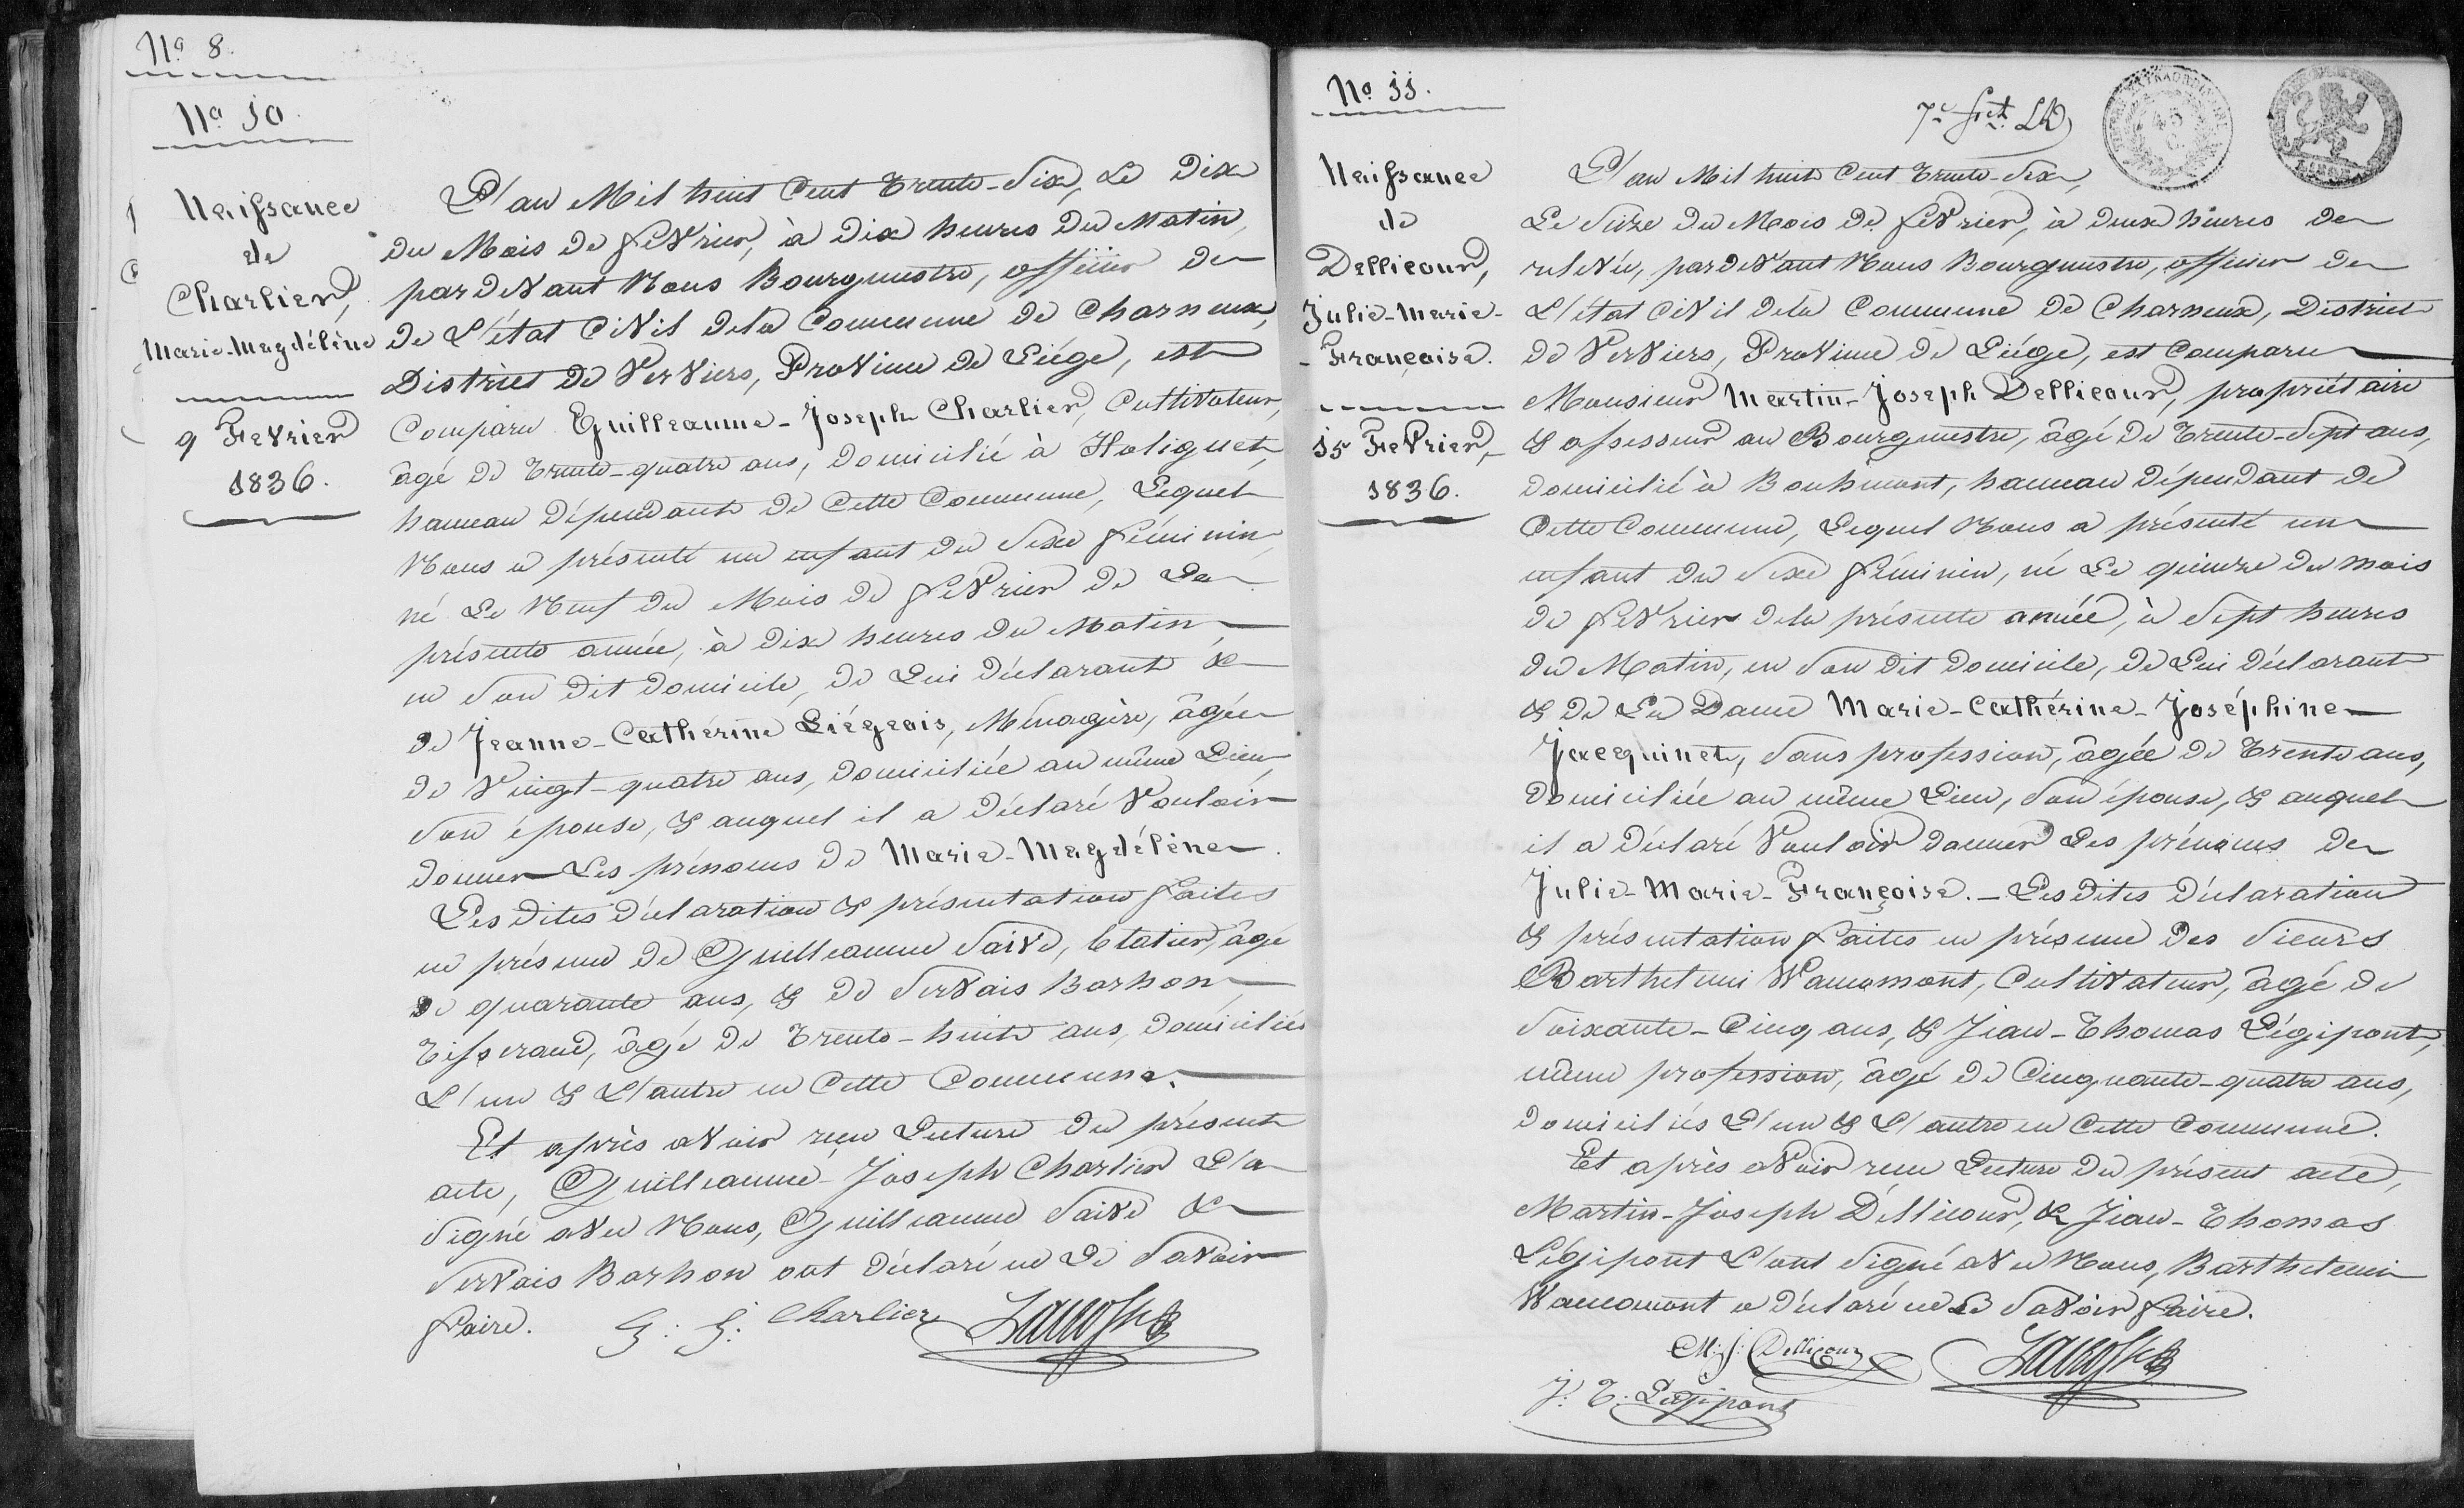 Nº 8.
Nº 10.
Naissance
de
Charlier,
Marie-Magdélène
9 Fevrier
1836.
L'an Mil huit Cent Trente-Six, Le Dix
du Mois de février, à dix heures du Matin,
pardevant Nous Bourgmestre, officier de
de L'état Civil dela Commune de Charneux,
District de Verviers, Province de Liége, est
Comparu Guilleaume-Joseph Charlier, Cultivateur,
âgé de Trente-quatre ans, domicilié à Holiguet,
hameau dépendant de Cette Commune, Lequel
Nous a présenté un enfant du Sexe féminin,
né Le Neuf du Mois de février de La
présente année, à dix heures du Matin,
en Son dit domicile, de Lui déclarant &
de Jeanne-Cathérine Liégeois, Ménagère, âgée
de Vingt-quatre ans, domiciliée au même Lieu,
Son épouse, & auquel il a déclaré Vouloir
donner Les prénoms de Marie-Magdélène.
Les dites déclaration & présentation faites
en présence de Guilleaume Saive, Clatier, âgé
de quarante ans, & de Servais Barhon,
Tisserand, âgé de Trente-huit ans, domiciliés
L'un & L'autre en Cette Commune.
Et après avoir reçu Lecture du présent
acte, Guilleaume-Joseph Charlier L'a
Signé avec Nous, Guilleaume Saive &
Servais Barhon ont déclaré ne Le Savoir
faire. G: J: Charlier
Nº 11.
Naissance
de
Dellicour,
Julie-Marie-
-Françoise.
15 Fevrier,
1836.
7e
45
L'an Mil huit Cent Trente-Six,
Le Seize du Mois de février, à deux heures de
relevée, pardevant Nous Bourgmestre, officier de
L'état Civil dela Commune de Charneux, District
de Verviers, Province de Liége, est Comparu
Monsieur Martin-Joseph Dellicour, propriétaire
& assesseur au Bourgmestre, âgé de Trente-Sept ans,
domicilié à Bouhimont, hameau dépendant de
Cette Commune, Lequel Nous a présenté un
enfant du Sexe féminin, né Le quinze du mois
de février dela présente année, à Sept heures
du Matin, en Son dit domicile, de Lui déclarant
& de La Dame Marie-Cathérine-Joséphine
Jacquinet, Sans profession, âgée de Trente ans,
domiciliée au même Lieu, Son épouse, & auquel
il a déclaré Vouloir donner Les prénoms de
Julie-Marie-Françoise.-Les dites déclaration
& présentation faites en présence des Sieurs
Barthelemi Waucomont, Cultivateur, âgé de
Soixante-Cinq ans, & Jean-Thomas Légipont,
même profession, âgé de Cinquante-quatre ans,
domiciliés L'un & L'autre en Cette Commune.
Et après avoir reçu Lecture du présent acte,
Martin-Joseph Dellicour, & Jean-Thomas
Légipont L'ont Signé avec Nous, Barthelemi
Waucomont a déclaré ne Le Savoir faire.
M: J: Dellicour
J: T: Legipont